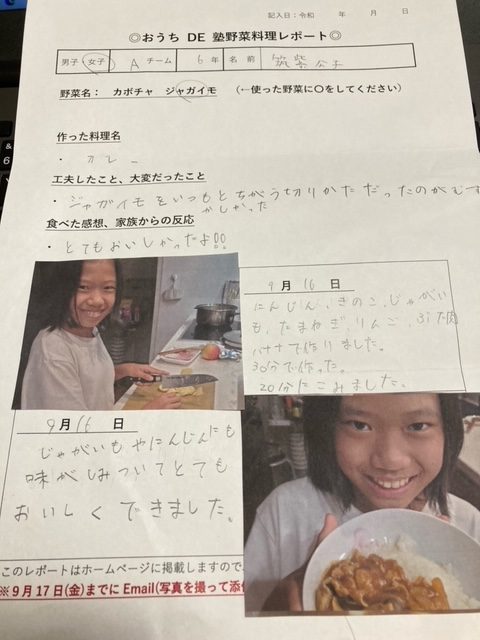 記入日：令和　　年　　月　　日
◎おうち DE 塾野菜料理レポート◎
男子 女子 A チーム 6 年 名前 筑紫
野菜名： カボチャ ジャガイモ （←使った野菜に〇をしてください）
作った料理名
・ カレー
工夫したこと、大変だったこと
・ジャガイモをいつもとちがう切りかただったのがむず
かしかった
食べた感想、家族からの反応
・とてもおいしかったよ!!
9 月 16 日
にんじん、きのこ、じゃがい
も、たまねぎ、りんご、ぶた肉
バナナで作りました。
30分で作った。
20分にこみました。
9 月 16 日
じゃがいもやにんじんにも
味がしみついてとても
おいしくできました。
このレポートはホームページに掲載しますので
※9月17日(金)までに Email(写真を撮って添
&
6